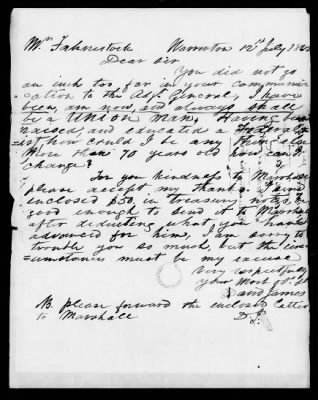 Mr. Fahnestock Warrenton 12th July 186
Dear Sir
You did not go
an inch too far in your communi-
cation to the Adjt. General, I have
been, am now, and always shall
be a Union man. Having been
raised, and educated a Federal-
ist how could I be any thing else
More than 70 years old how can I
change?
For your kindness to Marshall
please accept my thanks. I send
enclosed $50. in treasury notes, be
good enough to send it to Marshall
after deducting what you have
advanced for him, I am sorry to
trouble you so much, but the circ-
umstances must be my excuse
Very respectfully
Your Most obt. St
David James
NB please forward the enclosed letter
to Marshall D.J.